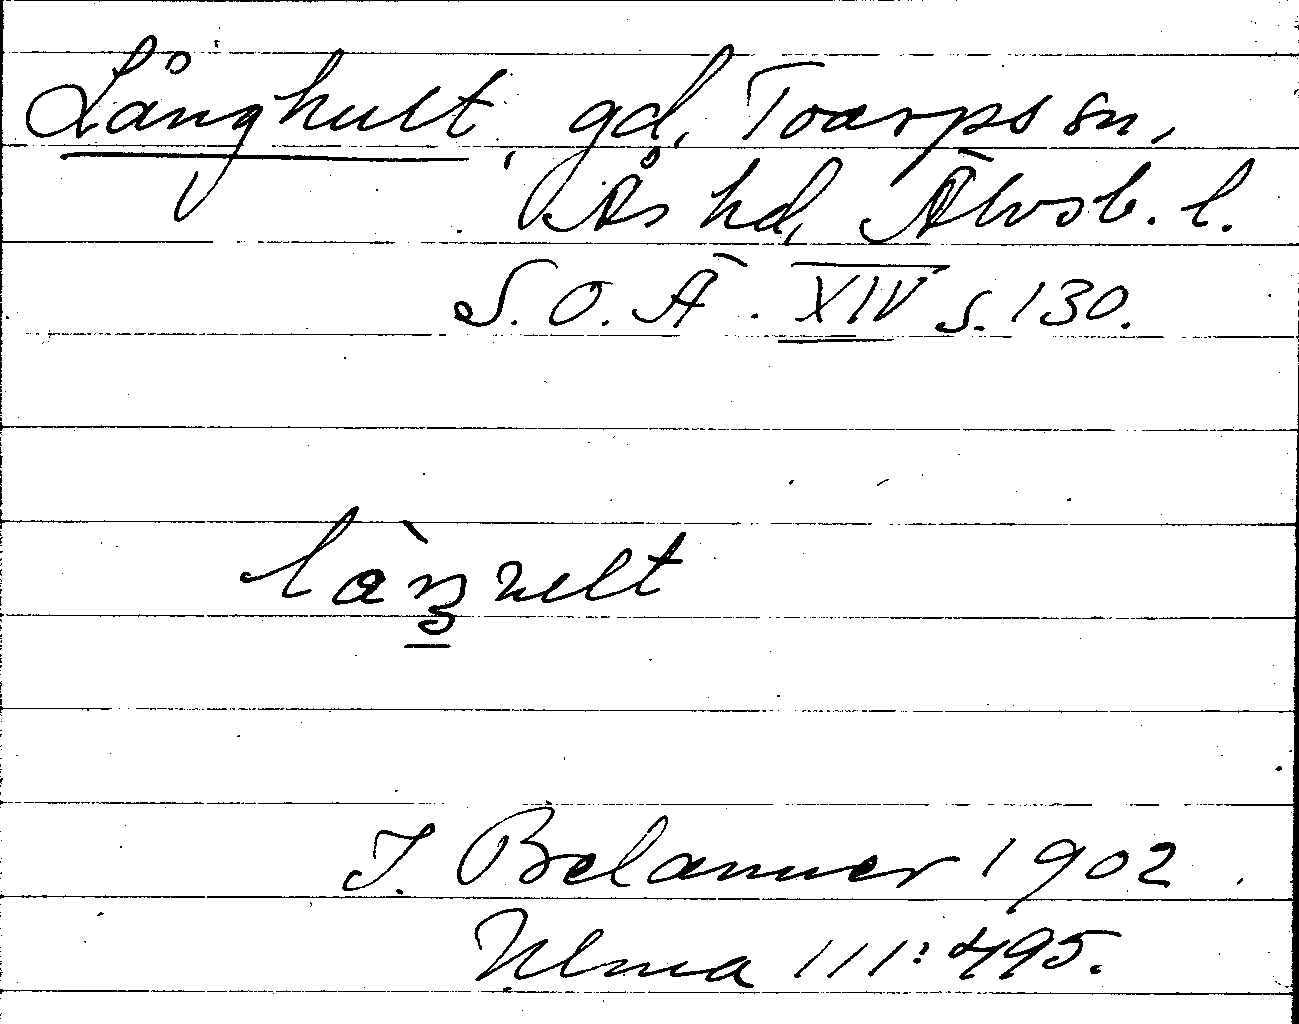 Långhult, gd, Toarps sn,
Ås hd, Älvsb. l.
S. O. Ä. XIV s. 130.
I. Belanner 1902.
Ulma 111:495.